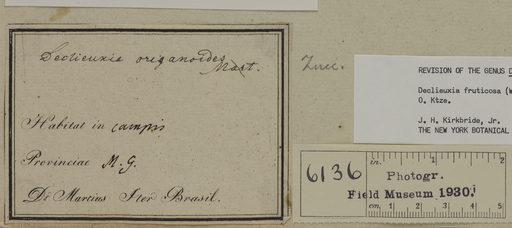 Declieuxia origanoides
Mart.
Zucc.
Habitat in campis
Provinciae M. G.
Dr Martius Iter Brasil.
REVISION OF THE GENUS D
Declieuxia fruticosa (W
O. Ktze.
J. H. Kirkbride, Jr.
THE NEW YORK BOTANICAL
6136
in. 1 2
Photogr.
Field Museum 1930,
cm. 1 2 3 4 5